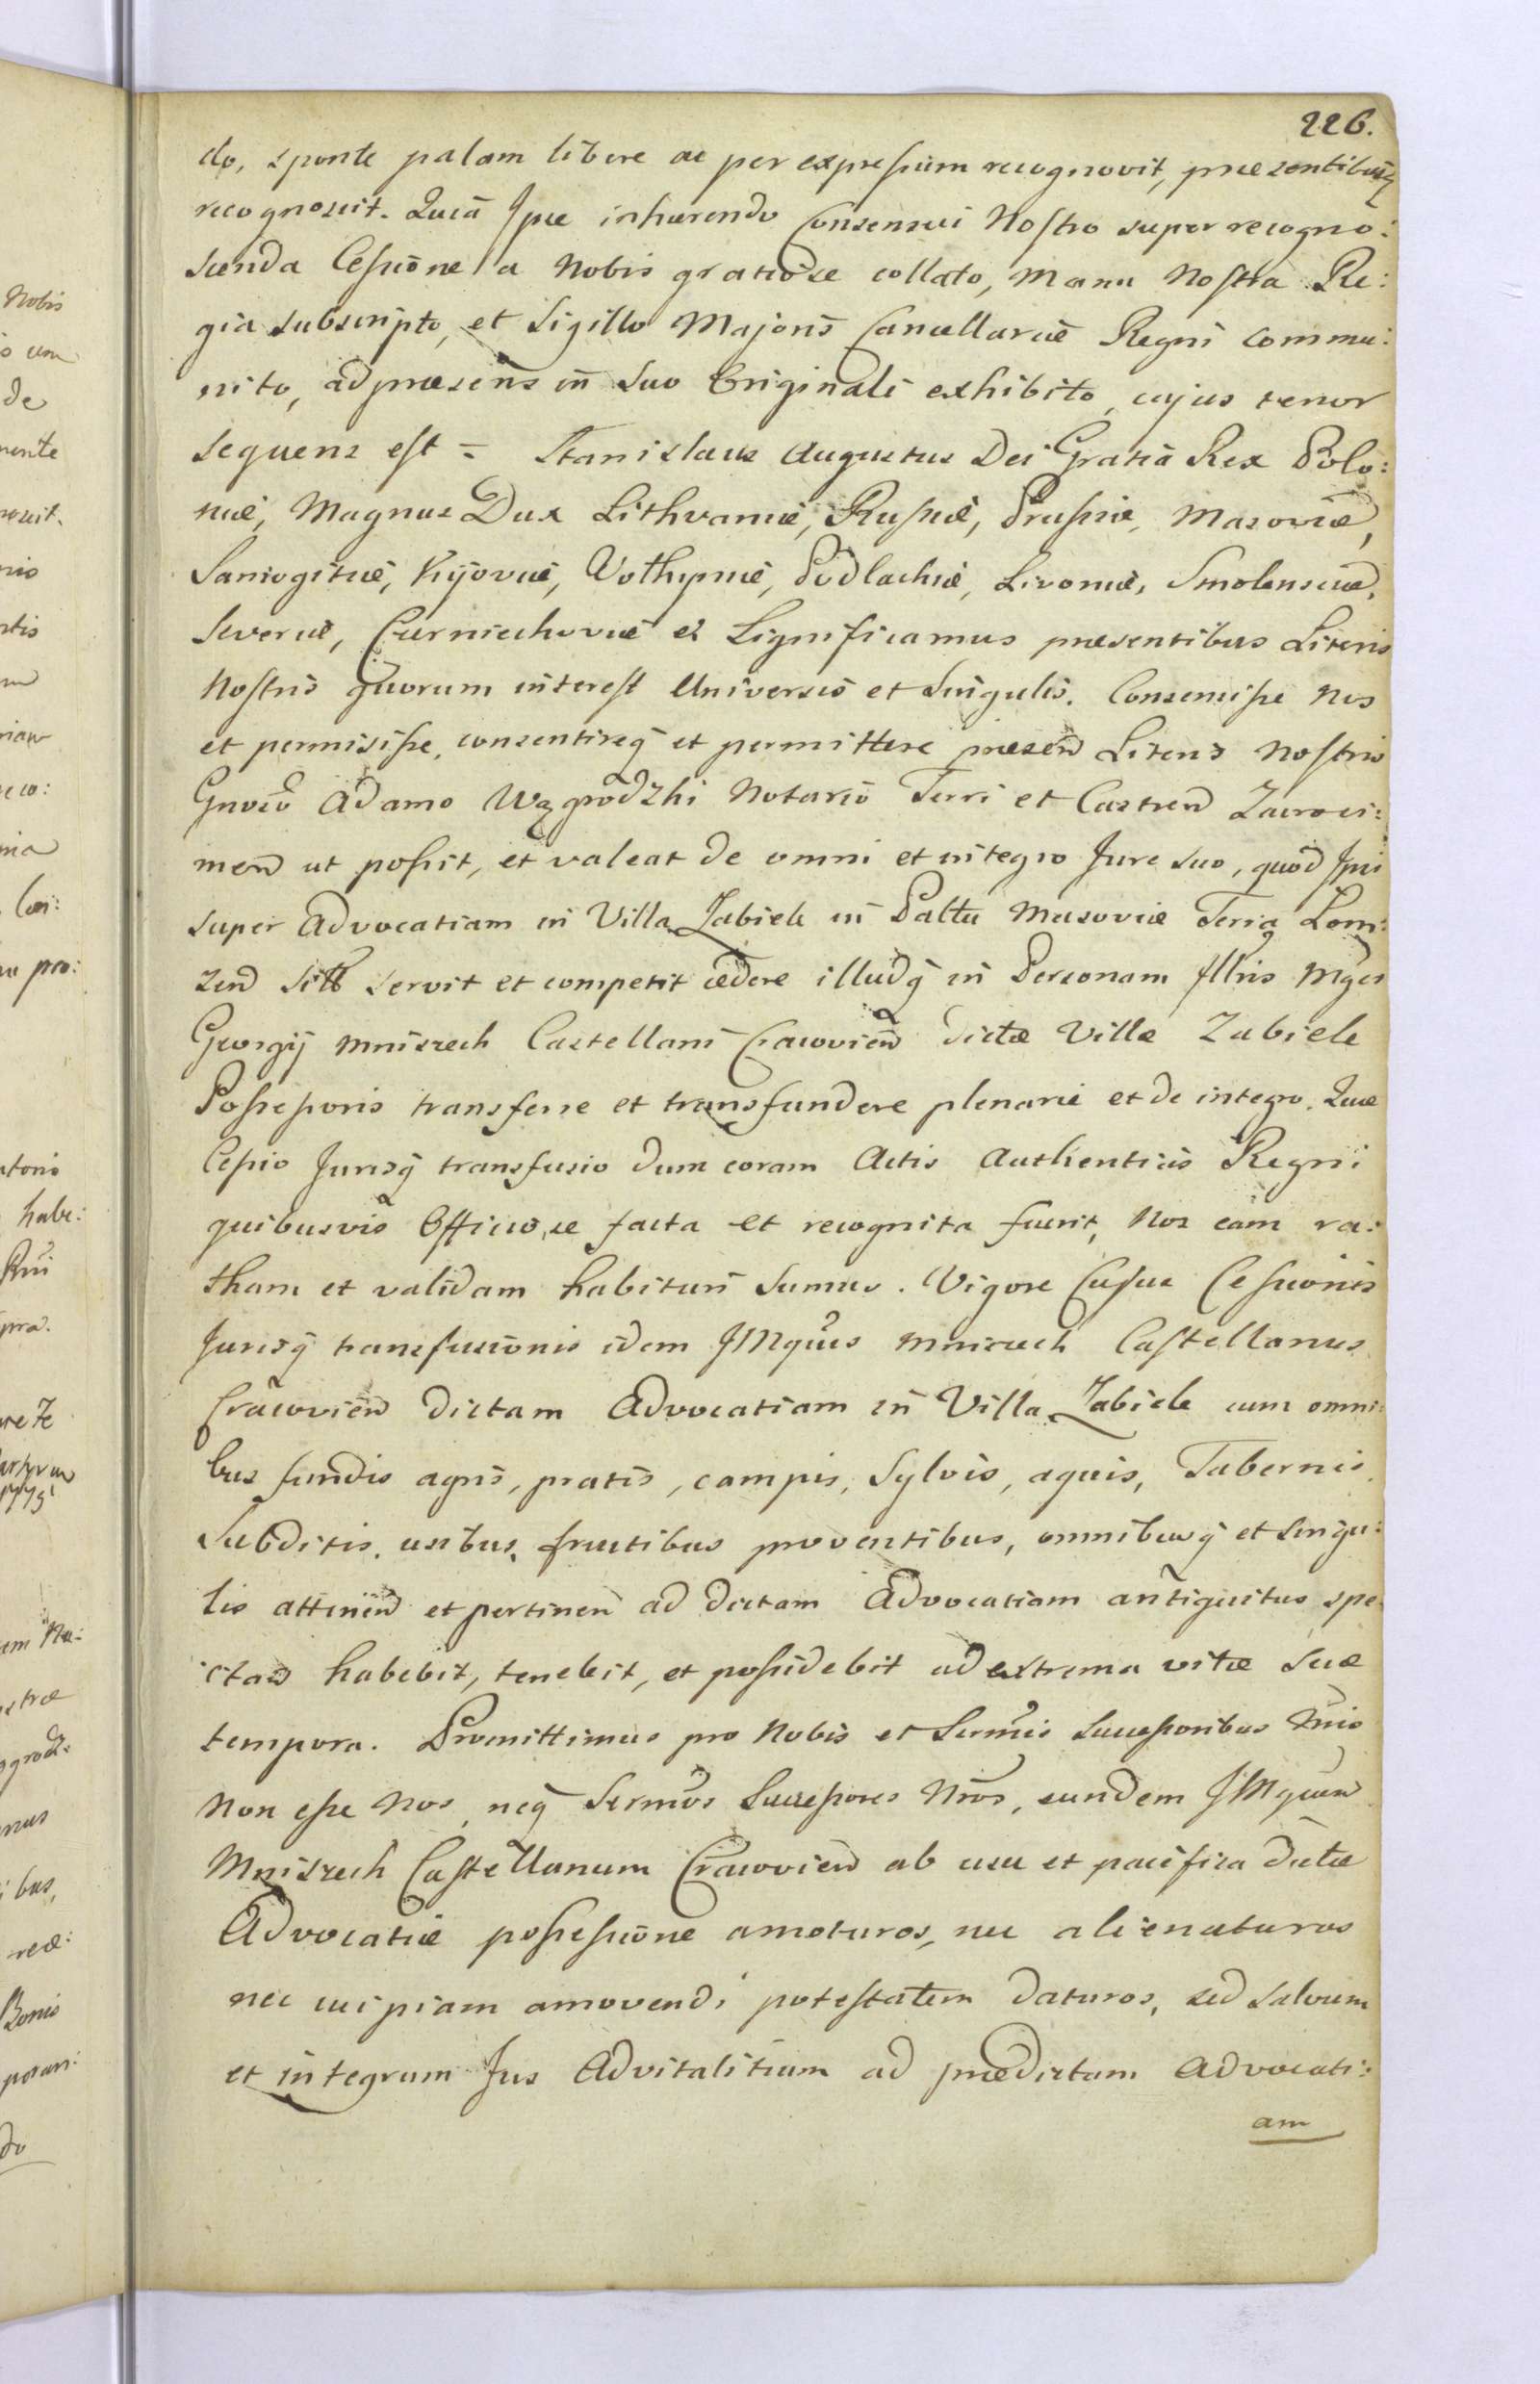 226.
do, sponte palam libere ac per expressum recognovit, praesentibusq
recognoscit. Quia Ipse inhaerendo Consensui Nostro super recogno:
scenda Cessione a Nobis gratiose collato, Manu Nostra Re:
gia subscripto, et Sigillo Majoris Cancellariae Regni commu:
nito, ad praesens in suo Originali exhibito, cujus tenor
sequens est = Stanislaus Augustus Dei Gratia Rex Polo:
niae, Magnus Dux Lithvaniae, Russiae, Prussiae, Masoviae,
Samogitiae, Kijoviae, Volhyniae, Podlachiae, Livoniae, Smolensciae,
Severiae, Czerniechoviae et Significamus praesentibus Literis
Nostris quorum interest Universis et Singulis. Consensisse Nos
et permisisse, consentireq et permittere praesen Literis Nostris
Gnoso Adamo Wągrodzki Notario Terri et Castren Zacroci:
men ut possit, et valeat de omni et integro Jure suo, quod Ipsi
super Advocatiam in Villa Zabiele in Paltu Masoviae Terra Lom:
zen servit et competit cedere illudq in Personam Illris Mgci
Georgij Mniszech Castellani Cracovien dictae Villae Zabiele
Possessoris transferre et transfundere plenarie et de integro. Quae
Cessio Jurisq transfusio dum coram Actis Authenticis Regni
quibusvis Officiose facta et recognita fuerit, Nos eam ra:
tham et validam habituri sumus. Vigore Cujus Cessionis
Jurisq transfusionis idem JMgcus Mniszech Castellanus
Cracovien dictam Advocatiam in Villa Zabiele cum omni:
bus fundis agris, pratis, campis, Sylvis, aquis, Tabernis,
Subditis, usibus, fructibus proventibus, omnibusq et singu:
lis attinen et pertinen ad dictam Advocatiam antiquitus spe:
ctan habebit, tenebit, et possidebit ad extrema vitae suae
tempora. Promittimus pro Nobis et Sermis Successoribus Nris
Non esse Nos, neq Sermos Successores Nros, eundem JMgcum
Mniszech Castellanum Cracovien ab usu et pacifica dictae
Advocatiae possessione amoturos, nec alienaturos
nec cuipiam amovendi potestatem daturos, sed salvum
et integrum Jus Advitalitium ad praedictam Advocati:
am